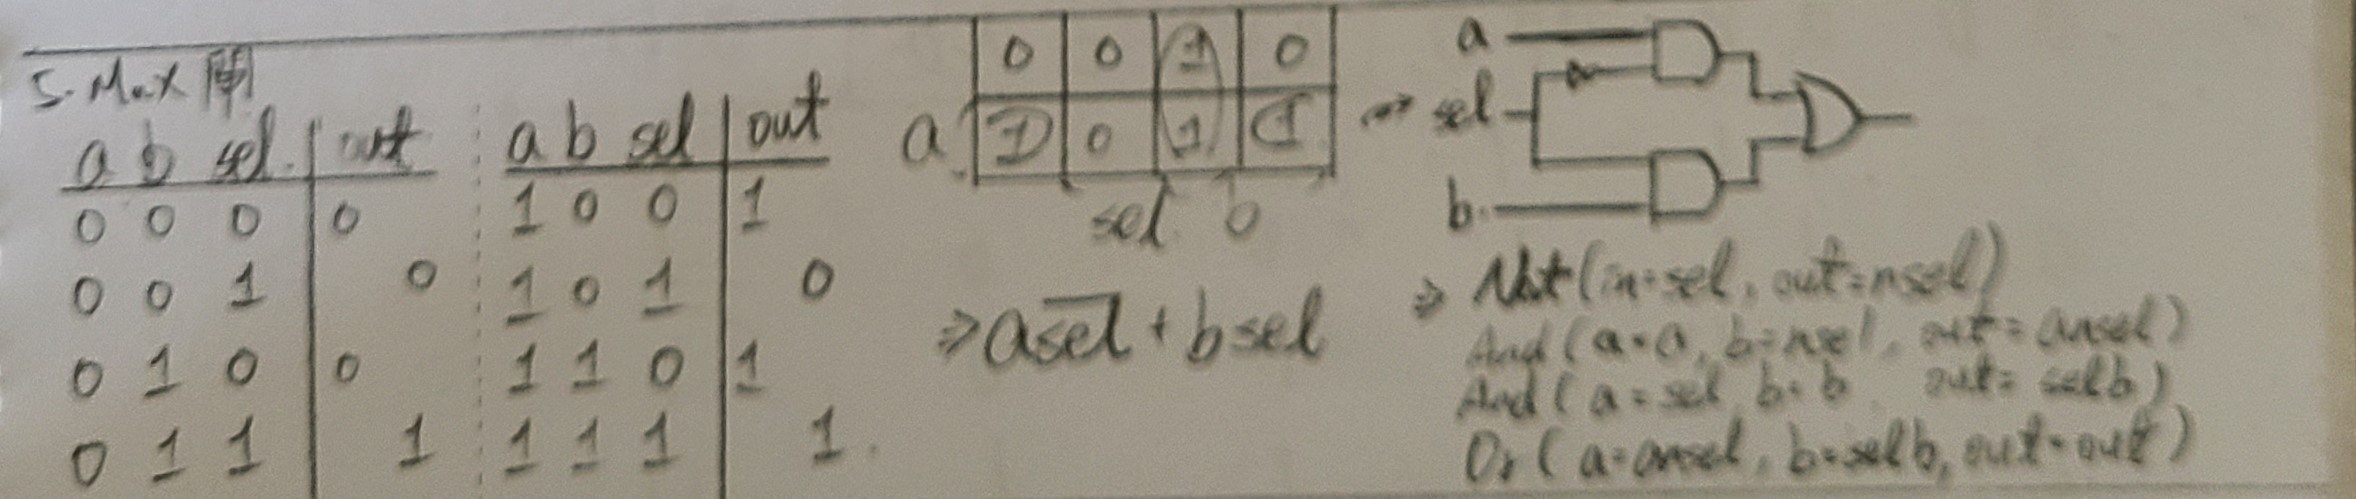 5. Mux 閘
a b sel out
0 0 0 0
0 0 1 0
0 1 0 0
0 1 1 1
a b sel out
1 0 0 1
1 0 1 0
1 1 0 1
1 1 1 1.
0 0 1 0
a 1 0 1 1
sel b
⇒ a s̅e̅l̅ + b sel
⇒
a
sel
b
⇒ Not(in=sel, out=nsel)
And(a=a, b=nsel, out=ansel)
And(a=sel b=b out=selb)
Or(a=ansel, b=selb, out=out)